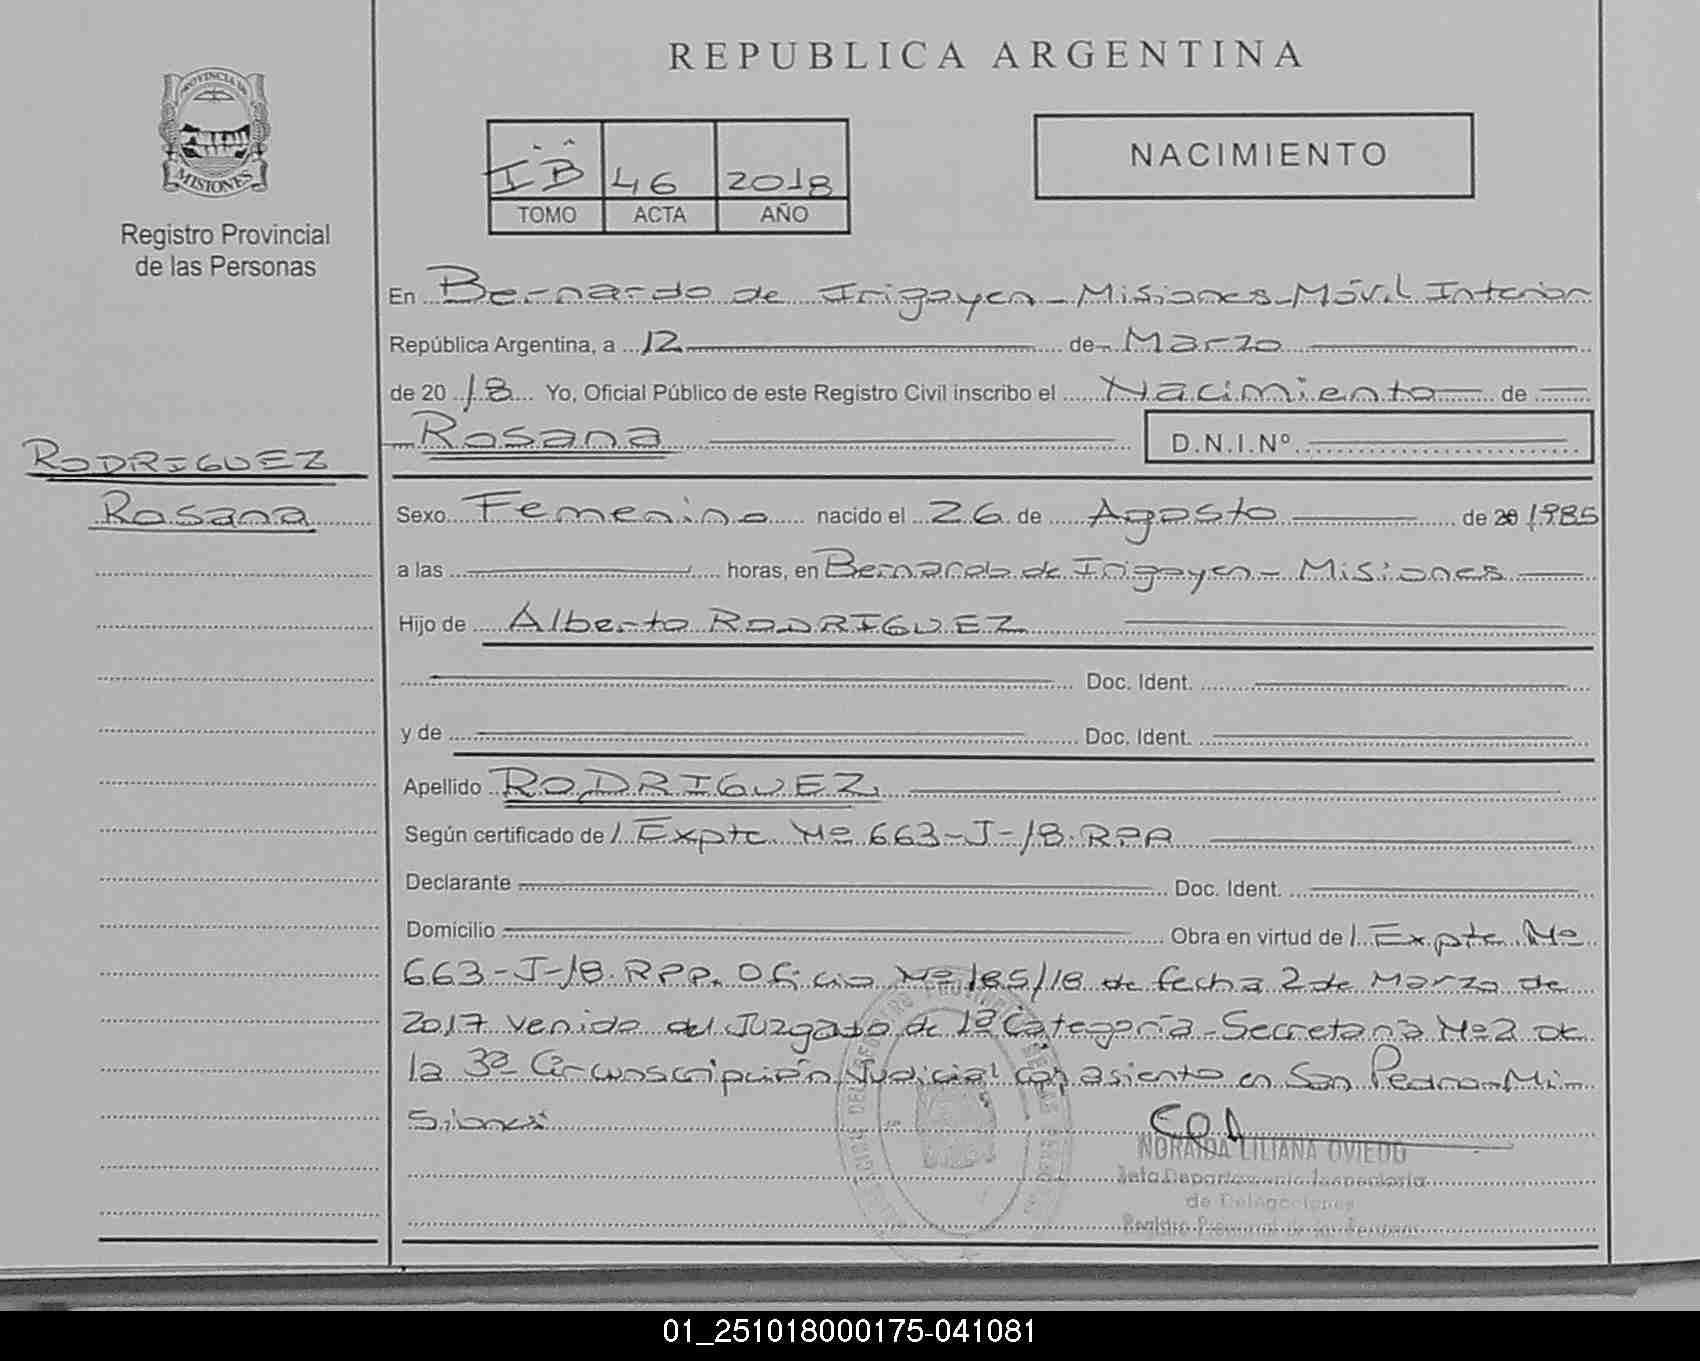 REPUBLICA ARGENTINA
PROVINCIA DE
MISIONES
Registro Provincial
de las Personas
IB 46 2018
TOMO ACTA AÑO
NACIMIENTO
En Bernardo de Irigoyen - Misiones - Móvil Interior
República Argentina, a 12 de Marzo
de 20 18 Yo, Oficial Público de este Registro Civil inscribo el Nacimiento de
Rosana D.N.I.Nº
RODRIGUEZ
Rosana
Sexo Femenino nacido el 26 de Agosto de 20 1985
a las horas, en Bernardo de Irigoyen - Misiones
Hijo de Alberto RODRIGUEZ
Doc. Ident.
y de Doc. Ident.
Apellido RODRIGUEZ
Según certificado de / Expte Nº 663-J-18.RPP
Declarante Doc. Ident.
Domicilio Obra en virtud de / Expte Nº
663-J-18.RPP. Oficio Nº 185/18 de fecha 2 de Marzo de
2017 venido del Juzgado de 1ª Categoría - Secretaria Nº2 de
la 3ª Circunscripción Judicial con asiento en San Pedro - Mi
siones
NORAIDA LILIANA OVIEDO
Jefa Departamento Inspectoria
de Delegaciones
Registro Provincial de las Personas
01_251018000175-041081